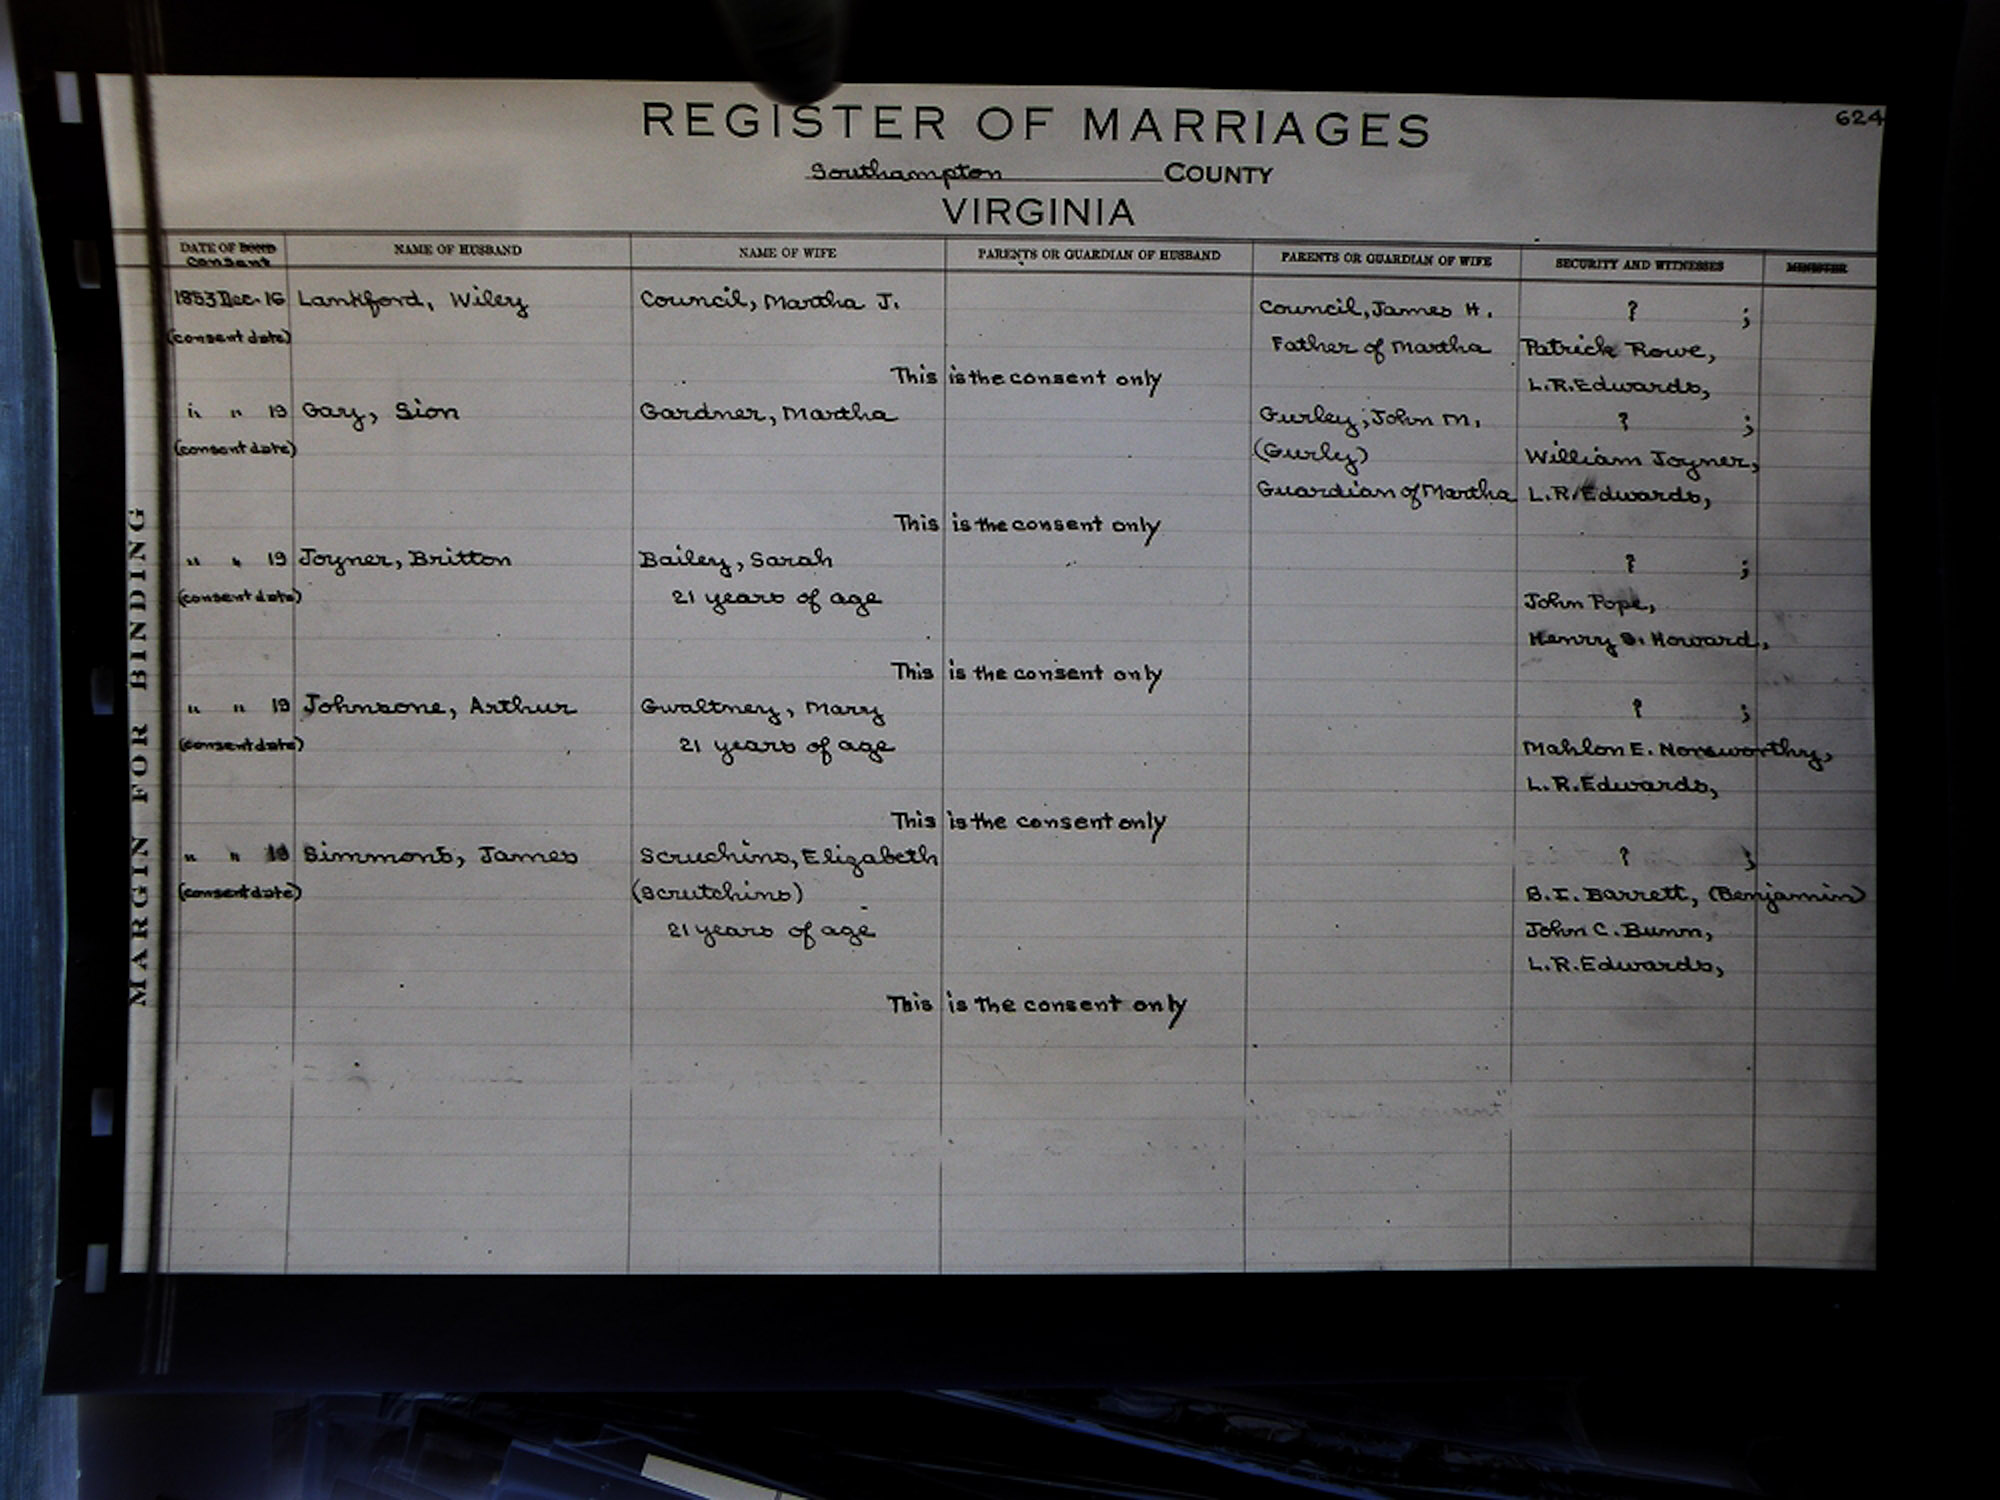 624
REGISTER OF MARRIAGES
Southampton COUNTY
VIRGINIA
MARGIN FOR BINDING
DATE OF BOND NAME OF HUSBAND NAME OF WIFE PARENTS OR GUARDIAN OF HUSBAND PARENTS OR GUARDIAN OF WIFE SECURITY AND WITNESSES MINISTER
Consent
1853 Dec. 16 Lankford, Wiley Council, Martha J. Council, James H. ? ;
(consent date) Father of Martha Patrick Rowe,
This is the consent only L.R. Edwards,
" " 19 Gary, Sion Gardner, Martha Gurley, John M. ? ;
(consent date) (Gurly) William Joyner,
Guardian of Martha L.R. Edwards,
This is the consent only
" " 19 Joyner, Britton Bailey, Sarah ? ;
(consent date) 21 years of age John Pope,
Henry B. Howard,
This is the consent only
" " 19 Johnsone, Arthur Gwaltney, Mary ? ;
(consent date) 21 years of age Mahlon E. Norsworthy,
L.R. Edwards,
This is the consent only
" " 19 Simmons, James Scruchins, Elizabeth ? ;
(consent date) (Scrutchins) B.I. Barrett, (Benjamin)
21 years of age John C. Bunn,
L.R. Edwards,
This is the consent only